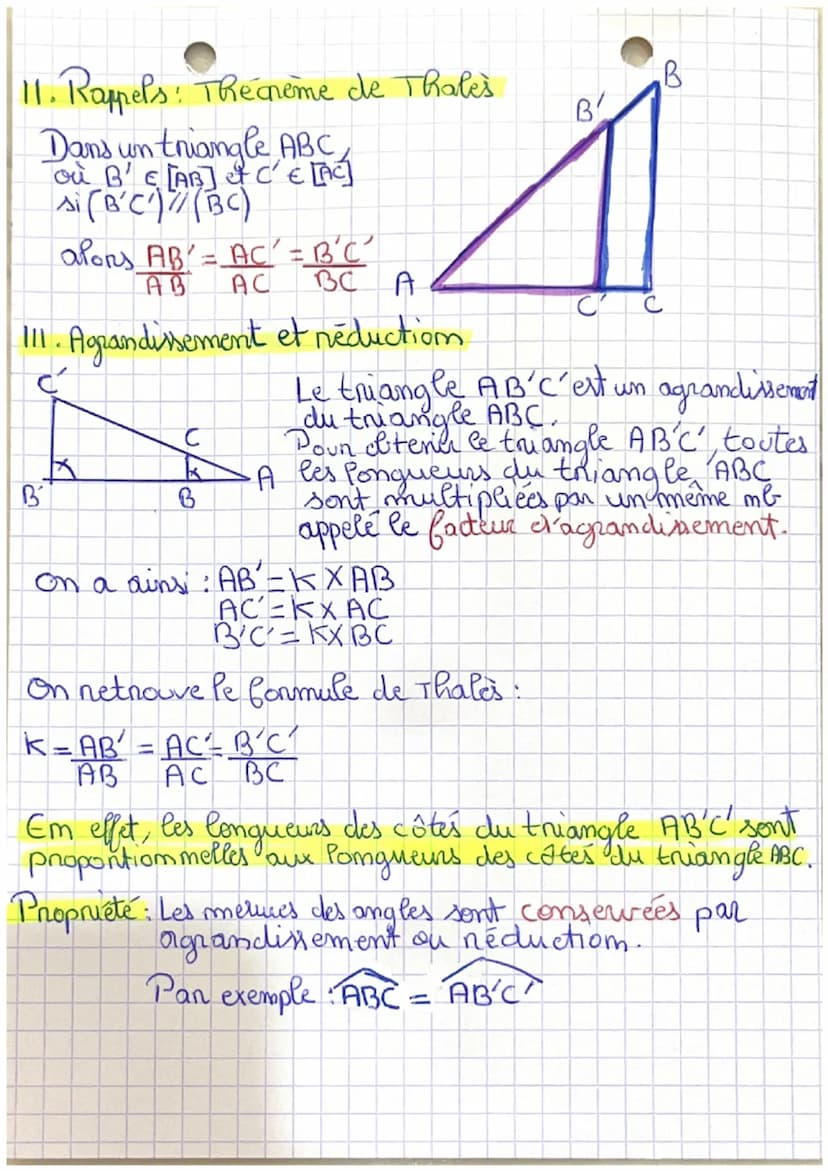 II. Rappels : Théorème de Thalès
Dans un triangle ABC,
où B' ∈ [AB] et C' ∈ [AC]
si (B'C') // (BC)
alors AB'/AB = AC'/AC = B'C'/BC
B
B'
A
C'
C
III. Agrandissement et réduction
C'
C
B'
B
A
Le triangle AB'C' est un agrandissement
du triangle ABC.
Pour obtenir le triangle AB'C', toutes
les longueurs du triangle ABC
sont multipliées par un même nb
appelé le facteur d'agrandissement.
On a ainsi : AB' = K X AB
AC' = K X AC
B'C' = K X BC
On retrouve le formule de Thalès :
K = AB'/AB = AC'/AC = B'C'/BC
En effet, les longueurs des côtés du triangle AB'C' sont
proportionnelles aux longueurs des côtés du triangle ABC.
Propriété : Les mesures des angles sont conservées par
agrandissement ou réduction.
Par exemple : ABC = AB'C'